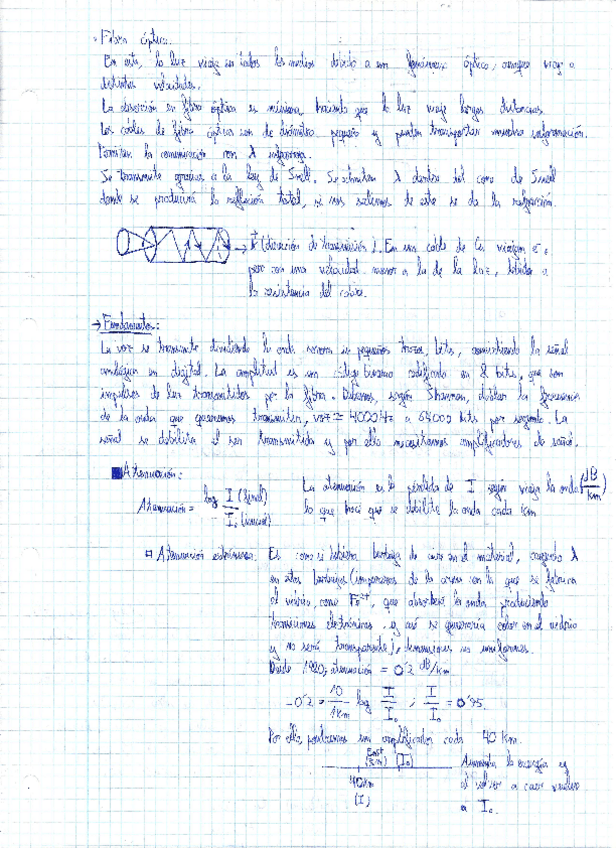 - Fibra óptica.
En esta, la luz viaja en todos los medios debido a un fenómeno óptico, aunque viaja a
distintas velocidades.
La absorción en fibra óptica es mínima, haciendo que la luz viaje largas distancias.
Los cables de fibra óptica son de diámetro pequeño y pueden transportar mucha información.
Permiten la comunicación con λ infrarroja.
Se transmite gracias a la ley de Snell. Se transmiten λ dentro del cono de Snell
donde se producirá la reflexión total, si nos salimos de este se da la refracción.
→ k (dirección de transmisión). En un cable de Cu viajan e⁻
pero con una velocidad menor a la de la luz, debido a
la resistencia del cobre.
→ Fundamentos:
La voz se transmite dividiendo la onda sonora en pequeños trozos, bits, convirtiendo la señal
analógica en digital. La amplitud es un código binario codificado en 8 bits, que son
impulsos de luz transmitidos por la fibra. Debemos, según Shannon, doblar la frecuencia
de la onda que queremos transmitir, voz = 4000 Hz a 64000 bits por segundo. La
señal se debilita al ser transmitida y por ello necesitamos amplificadores de señal.
Atenuación:
Atenuación = log I (final) / I₀ (inicial)
La atenuación es la pérdida de I según viaja la onda (dB/km)
lo que hace que se debilite la onda cada km
Atenuación extrínseca. Es como si hubiera burbujas de aire en el material,
en estas burbujas (impurezas de la arena con la que se fabrica
el vidrio, como Fe²⁺, que absorberá la onda produciendo
transiciones electrónicas y así se generaría calor en el vidrio
y no será transparente), dimensiones no uniformes.
Desde 1980, atenuación = 0'2 dB/km
-0'2 = 10/1km log I/I₀ ; I/I₀ = 0'95
Por ello, pondremos un amplificador cada 40 km.
(I₀)
40 km
(I)
Aumenta la energía y
el valor a caer vuelve
a I₀.